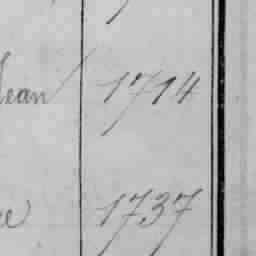 Jean 1714
1737